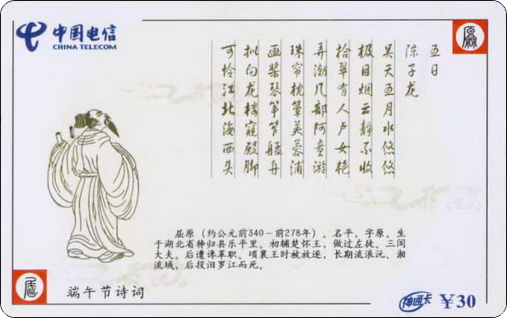 中国电信
CHINA TELECOM
五日
陈子龙
吴天五月水悠悠
极目烟云静不收
拾翠有人卢女艳
弄潮几部阿童游
珠帘枕簟芙蓉浦
画桨琴筝舴艋舟
拟向龙楼窥殿脚
可怜江北海西头
屈原（约公元前340－前278年）。名平，字原。生
于湖北省秭归县乐平里。初辅楚怀王，做过左徒、三闾
大夫。后遭谗革职。顷襄王时被放逐，长期流浪沅、湘
流域，后投汨罗江而死。
端午节诗词
神通卡
¥30